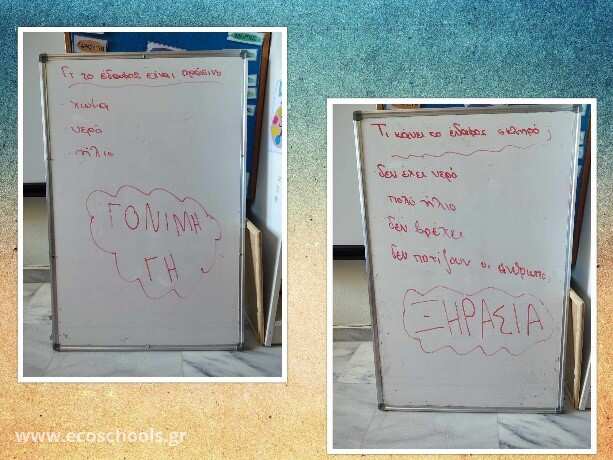 Γτ το έδαφος είναι πράσινο
χώμα
νερό
ήλιο
ΓΟΝΙΜΗ
ΓΗ
Τι κάνει το έδαφος σκληρό;
δεν έχει νερό
πολύ ήλιο
δεν βρέχει
δεν ποτίζουν οι άνθρωποι
ΞΗΡΑΣΙΑ
www.ecoschools.gr